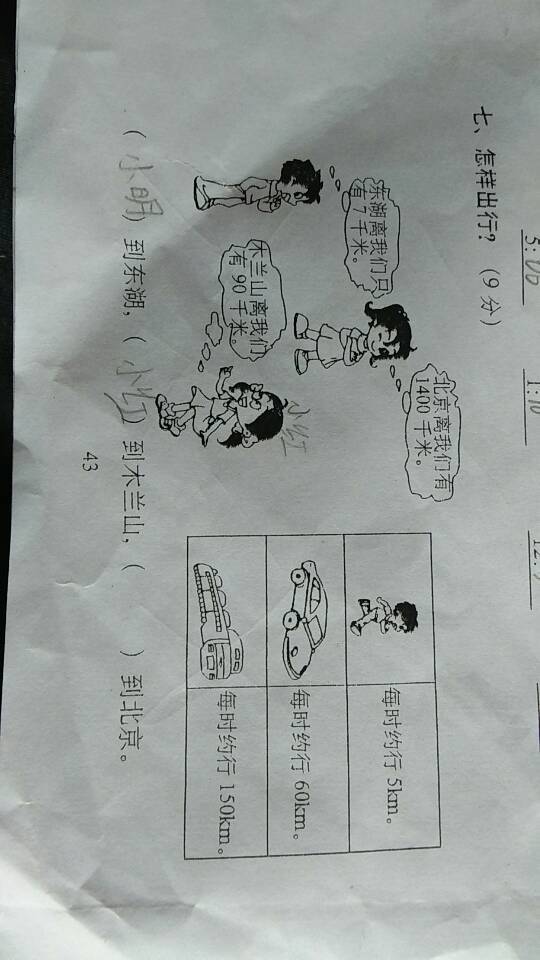 5:00
1:10
七、怎样出行？(9 分)
东湖离我们只
有 7 千米。
木兰山离我们
有 90 千米。
北京离我们有
1400 千米。
小红
每时约行 5km。
每时约行 60km。
每时约行 150km。
(小明) 到东湖，(小红) 到木兰山，( ) 到北京。
43